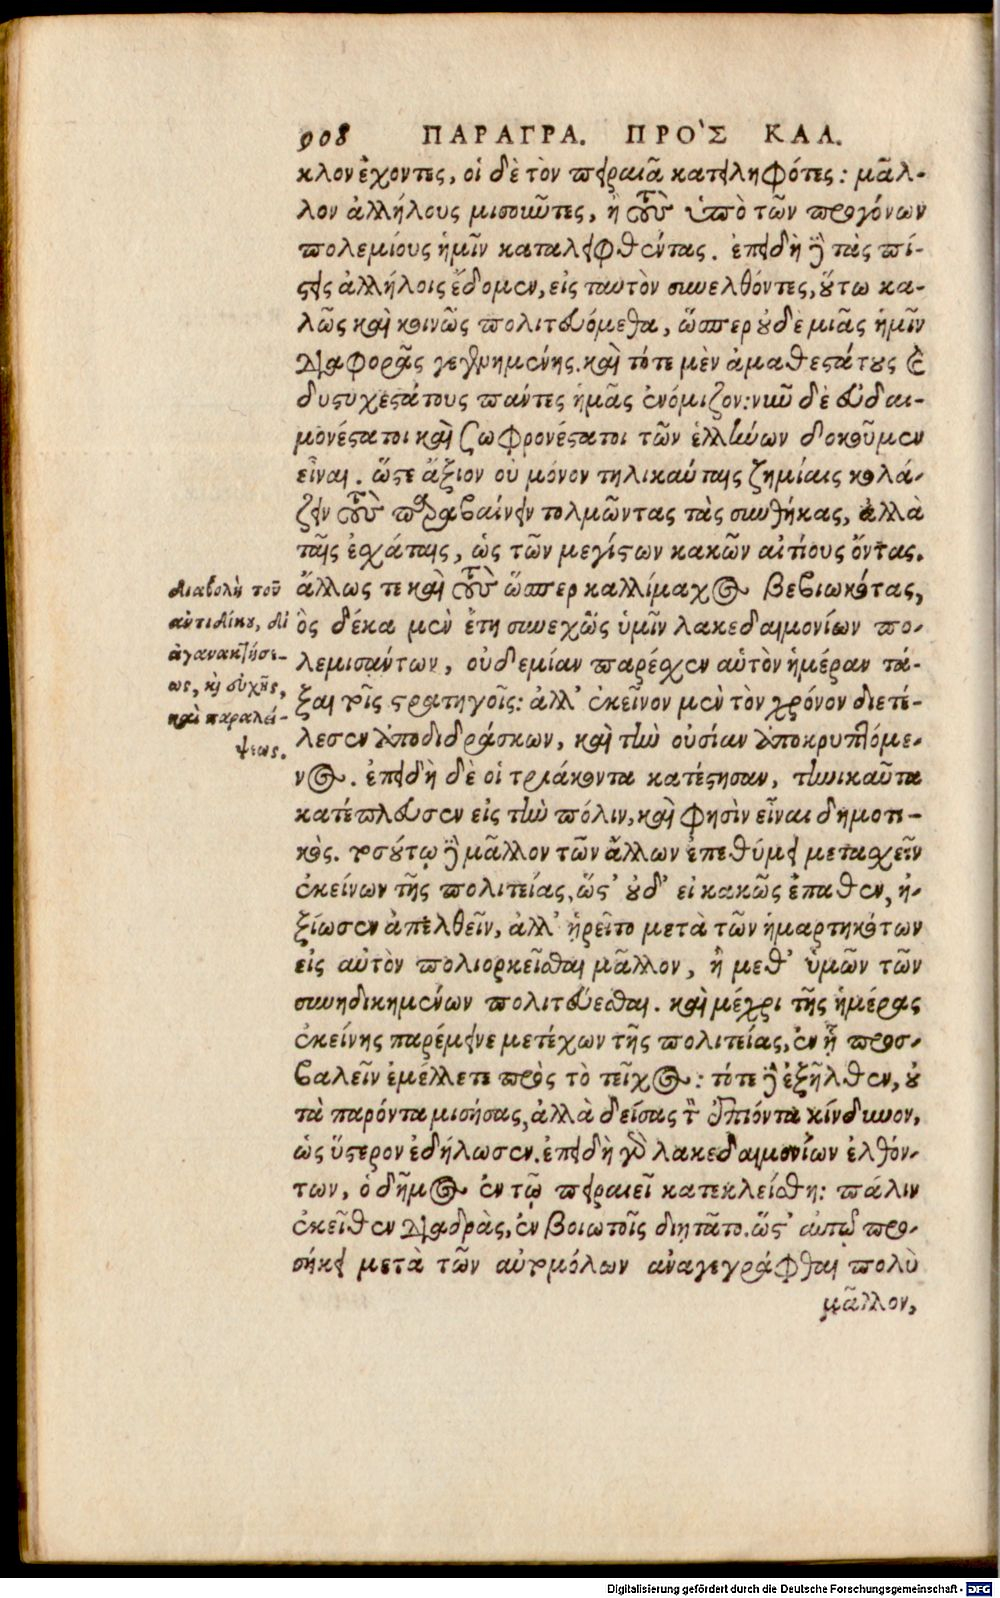 908 ΠΑΡΑΓΡΑ. ΠΡΟῸΣ ΚΑΛ.
κλον ἔχοντες, οἱ δὲ τὸν πειραιᾶ κατειληφότες: μᾶλ-
λον ἀλλήλους μισοῦντες, ἢ τοὺς ὑπὸ τῶν προγόνων
πολεμίους ἡμῖν καταλειφθέντας. ἐπειδὴ δὲ τὰς πί-
στεις ἀλλήλοις ἔδομεν, εἰς ταυτὸν συνελθόντες, οὕτω κα-
λῶς καὶ κοινῶς πολιτευόμεθα, ὥσπερ οὐδὲ μιᾶς ἡμῖν
διαφορᾶς γεγενημένης. καὶ τότε μὲν ἀμαθεστάτους καὶ
δυστυχεστάτους πάντες ἡμᾶς ἐνόμιζον: νῦν δὲ εὐδαι-
μονέστατοι καὶ σωφρονέστατοι τῶν ἑλλήνων δοκοῦμεν
εἶναι. ὥστε ἄξιον οὐ μόνον τηλικαύταις ζημίαις κολά-
ζειν τοὺς παραβαίνειν τολμῶντας τὰς συνθήκας, ἀλλὰ
ταῖς ἐσχάταις, ὡς τῶν μεγίστων κακῶν αἰτίους ὄντας.
ἄλλως τε καὶ τοὺς ὥσπερ καλλίμαχος βεβιωκότας,
ὃς δέκα μὲν ἔτη συνεχῶς ὑμῖν λακεδαιμονίων πο-
λεμισάντων, οὐδεμίαν παρέσχεν αὑτὸν ἡμέραν τά-
ξαι τοῖς στρατηγοῖς: ἀλλ' ἐκεῖνον μὲν τὸν χρόνον διετέ-
λεσεν ἀποδιδράσκων, καὶ τὴν οὐσίαν ἀποκρυπτόμε-
νος. ἐπειδὴ δὲ οἱ τριάκοντα κατέστησαν, τηνικαῦτα
κατέπλευσεν εἰς τὴν πόλιν, καὶ φησὶν εἶναι δημοτι-
κός. τοσούτῳ δὲ μᾶλλον τῶν ἄλλων ἐπεθύμει μετασχεῖν
ἐκείνων τῆς πολιτείας, ὥστ' οὐδ' εἰ κακῶς ἔπαθεν, ἠ-
ξίωσεν ἀπελθεῖν, ἀλλ' ᾑρεῖτο μετὰ τῶν ἡμαρτηκότων
εἰς αὐτὸν πολιορκεῖσθαι μᾶλλον, ἢ μεθ' ὑμῶν τῶν
συνηδικημένων πολιτεύεσθαι. καὶ μέχρι τῆς ἡμέρας
ἐκείνης παρέμεινε μετέχων τῆς πολιτείας, ἐν ᾗ προσ-
βαλεῖν ἐμέλλετε πρὸς τὸ τεῖχος: τότε δὲ ἐξῆλθεν, οὐ
τὰ παρόντα μισήσας, ἀλλὰ δείσας τὸν ἐπιόντα κίνδυνον,
ὡς ὕστερον ἐδήλωσεν. ἐπειδὴ γὰρ λακεδαιμονίων ἐλθόν-
των, ὁ δῆμος ἐν τῷ πειραιεῖ κατεκλείσθη: πάλιν
ἐκεῖθεν διαδρὰς, ἐν βοιωτοῖς διῃτᾶτο. ὥστ' αὐτῷ προ-
σήκει μετὰ τῶν αὐτομόλων ἀναγεγράφθαι πολὺ
μᾶλλον,
διαβολὴ τοῦ
ἀντιδίκου, δι
ἀγανακτήσε-
ως, καὶ εὐχῆς,
καὶ παραλεί-
ψεως.
Digitalisierung gefördert durch die Deutsche Forschungsgemeinschaft - DFG